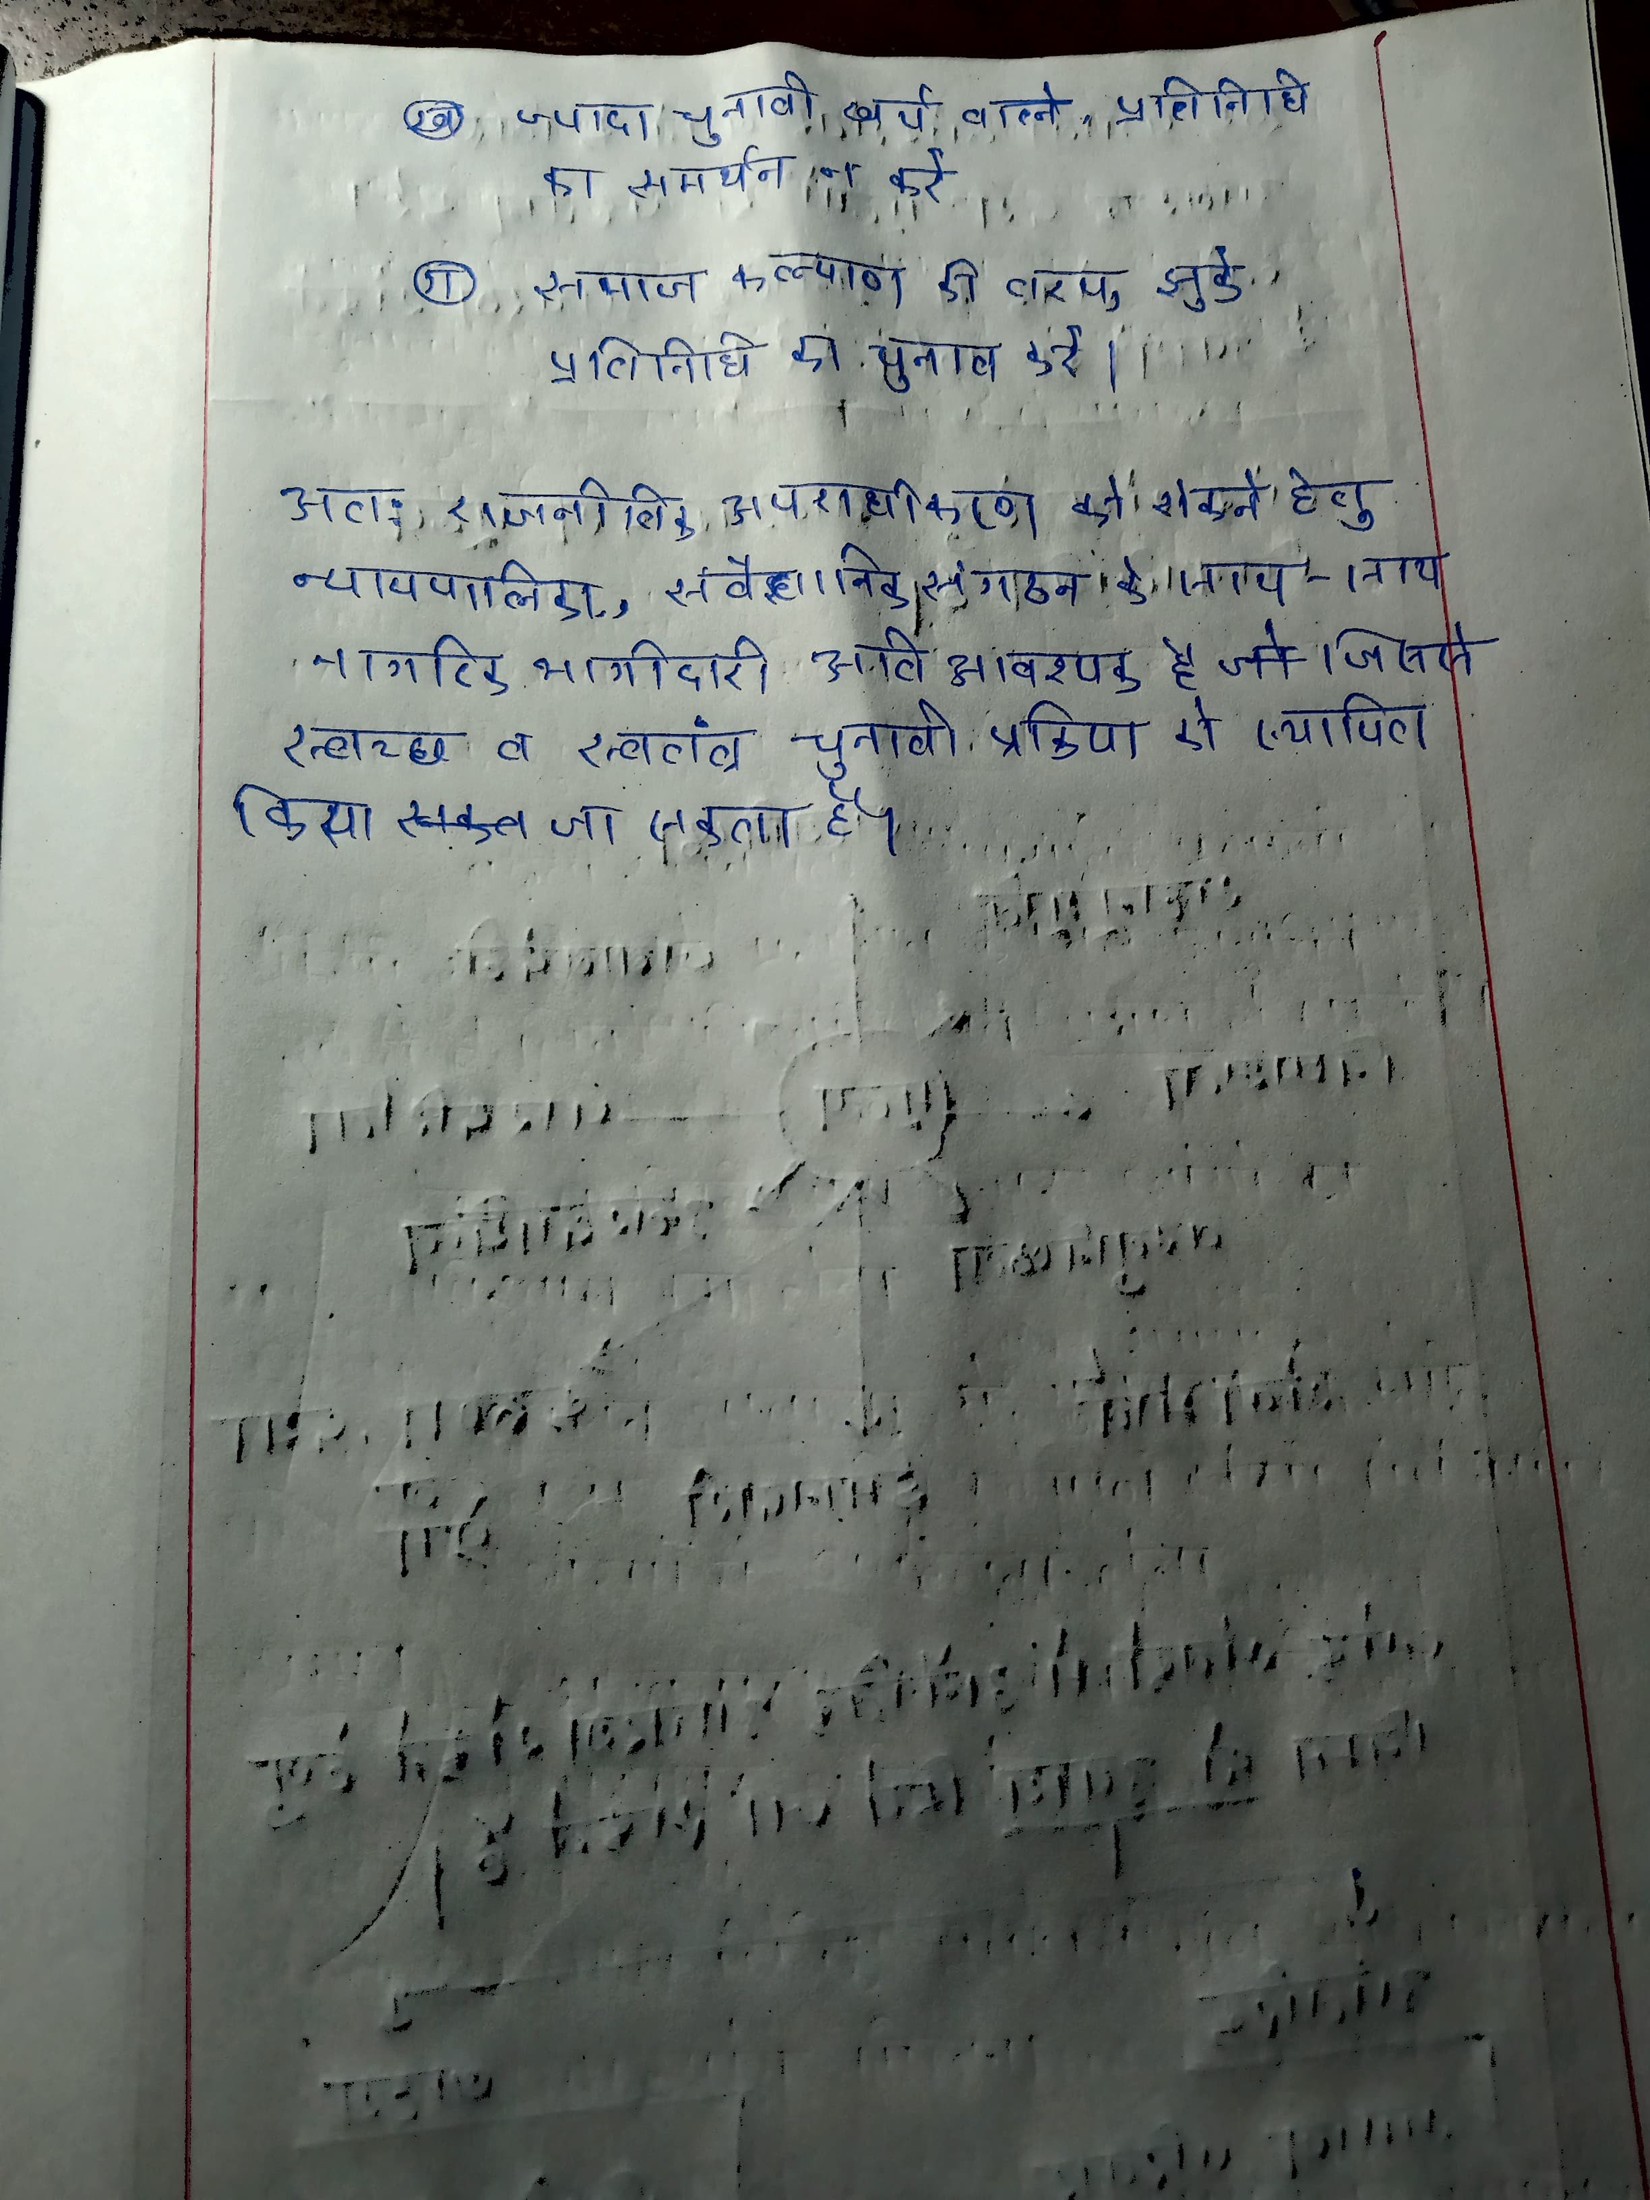 (ख) ज्यादा चुनावी खर्च वाले प्रतिनिधि
का समर्थन न करें
(ग) समाज कल्याण की तरफ झुके
प्रतिनिधि का चुनाव करें।
अतः राजनीतिक अपराधीकरण को रोकने हेतु
न्यायपालिका, संवैधानिक संगठन के साथ-साथ
नागरिक भागीदारी अति आवश्यक है जिससे
स्वच्छ व स्वतंत्र चुनावी प्रक्रिया को स्थापित
किया जा सकता है।